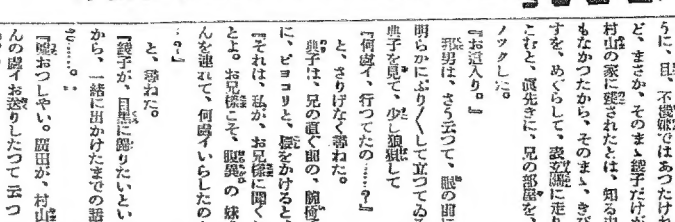 うに、且、不機嫌ではあつたけれ
ど、まさか、そのまゝ綾子だけが
村山の家に殘されたとは、知る由
もなかつたから、そのまゝ、きび
すを、めぐらして、表玄關に走り
こむと、眞先きに、兄の部屋を、
ノツクした。
『お這入り。』
邦男は、さう云つて、眼の前に
明らかにぷり〳〵して立つてゐる
典子を見て、少し狼狽して
『何處イ、行つてたの……？』
と、さりげなく尋ねた。
典子は、兄の直ぐ前の、腕椅
に、ピヨコリと、腰をかけると
『それは、私が、お兄樣に聞く
とよ。お兄樣こそ、腹異の妹
んを連れて、何處イいらしたの
…？』
と、尋ねた。
『綾子が、目黑に歸りたいとい
から、一緒に出かけたまでの話
さ……。』
『噓おつしやい。廣田が、村山
んの處イお送りしたつて云つ